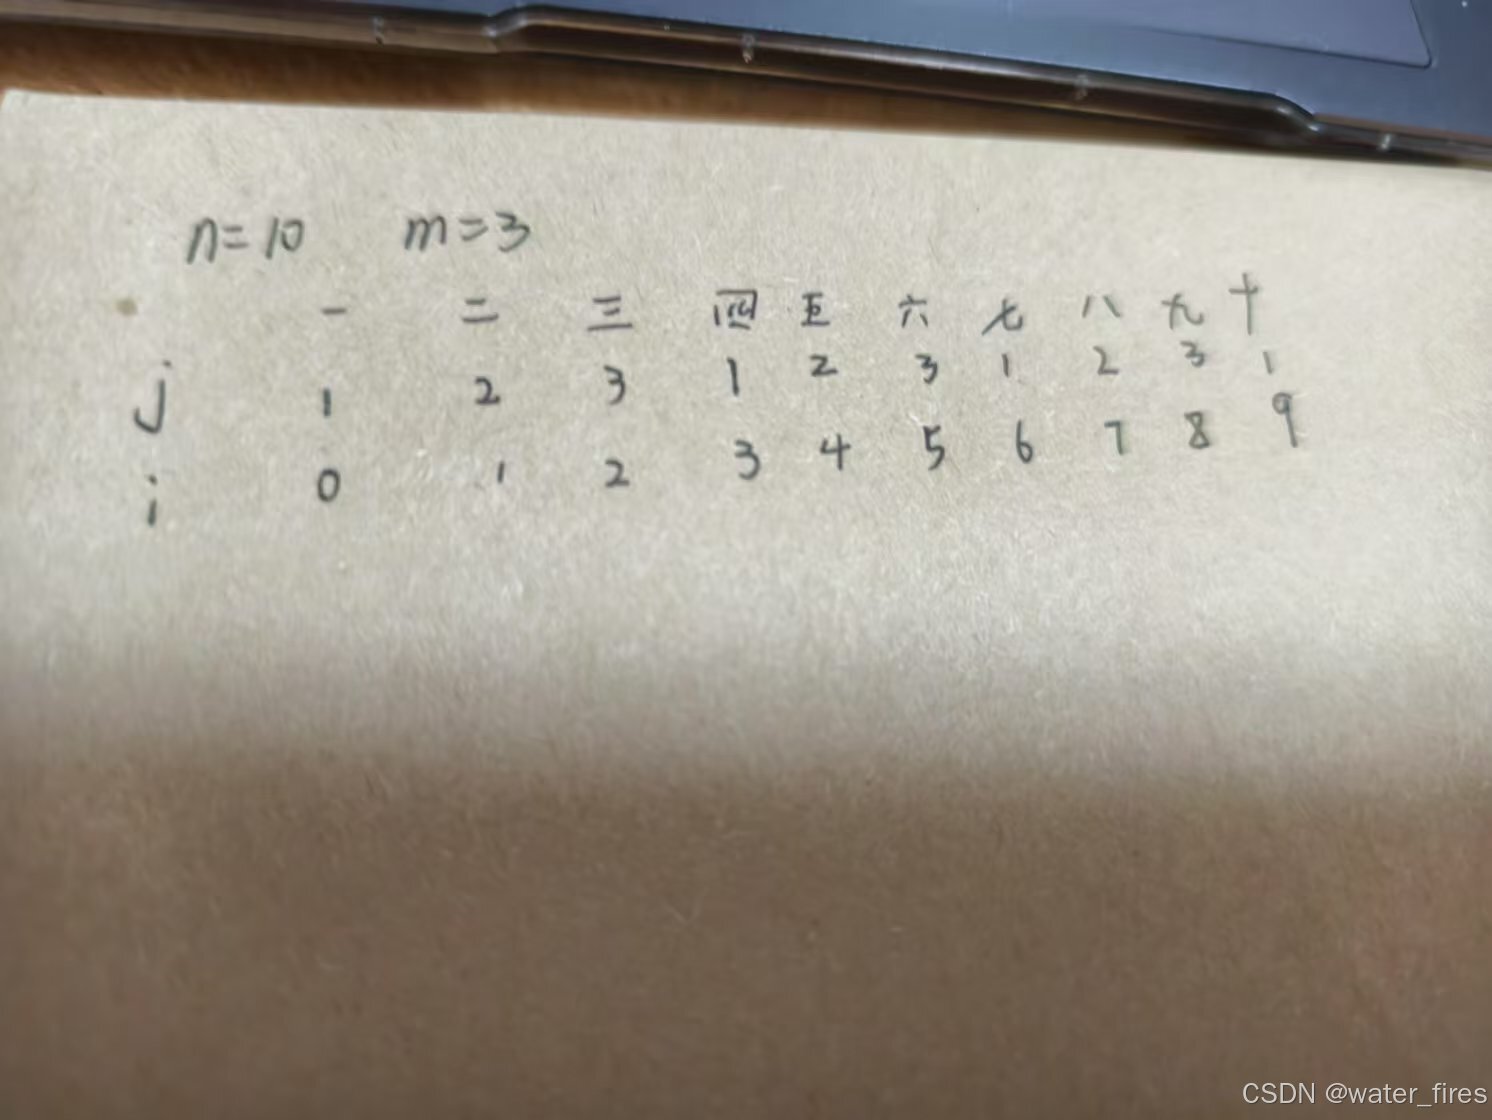 n=10 m=3
一 二 三 四 五 六 七 八 九 十
j 1 2 3 1 2 3 1 2 3 1
i 0 1 2 3 4 5 6 7 8 9
CSDN @water_fires